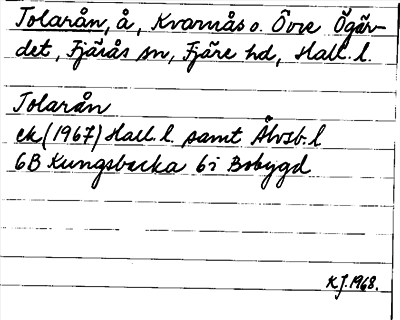 Tolarån, å, Kvarnås o. Övre Ögär-
det, Fjärås sn, Fjäre hd, Hall. l.
Tolarån
ek (1967) Hall. l. samt Älvsb. l
6B Kungsbacka 6i Bobygd
K J. 1968.